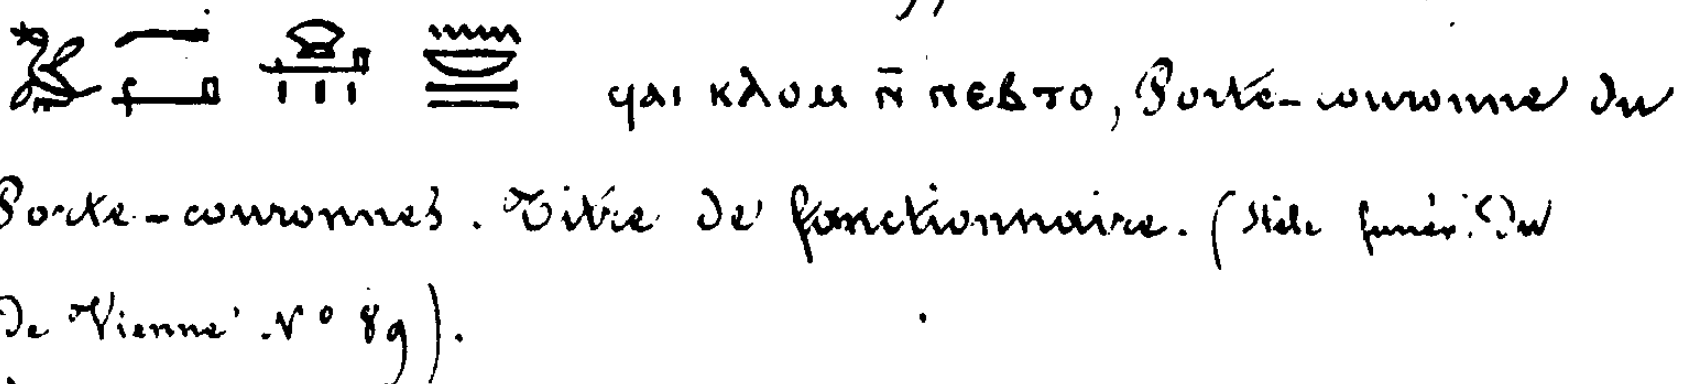 ϥⲁⲓ ⲕⲗⲟⲙ ⲛ̄ ⲡⲉⲃⲧⲟ, Porte-couronne du
Porte-couronnes. Titre de fonctionnaire. (Stèle funér. Du
De Vienne N° 89).